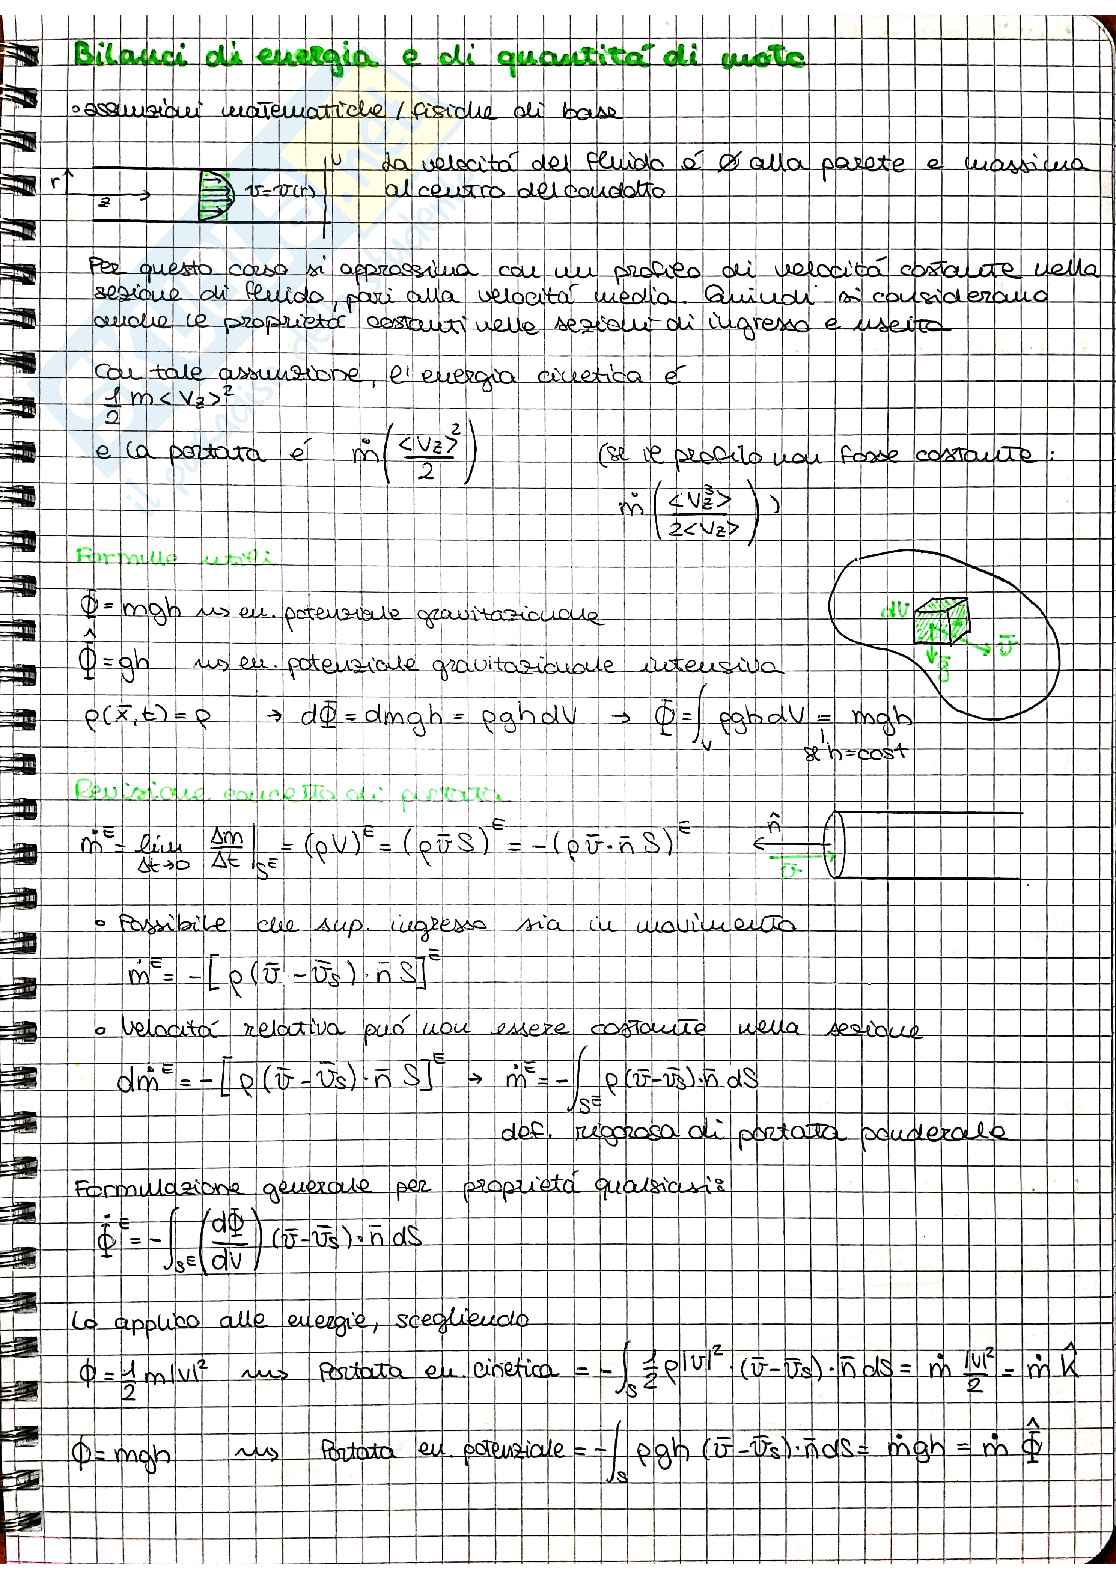 Bilanci di energia e di quantitá di moto
◦ assunzioni matematiche / fisiche di base
La velocitá del fluido é Ø alla parete e massima
r z v=v(r) al centro del condotto
Per questo corso si approssima con un profilo di velocitá costante nella
sezione di fluido, pari alla velocitá media. Quindi si considerano
anche le proprietá costanti nelle sezioni di ingresso e uscita
Con tale assunzione, l'energia cinetica é
1/2 m<Vz>²
e la portata é ṁ(<Vz>²/2) (se il profilo non fosse costante:
ṁ(<Vz³>/2<Vz>))
Formule utili
Φ = mgh ⇝ en. potenziale gravitazionale
Φ̂ = gh ⇝ en. potenziale gravitazionale intensiva
dV v̄ ḡ
ρ(x̄,t) = ρ → dΦ = dmgh = ρghdV → Φ = ∫_V ρghdV = mgh
se h=cost
Revisione concetto di portata
ṁ^E = lim Δt→0 Δm/Δt |_S^E = (ρV)^E = (ρv̄S)^E = -(ρv̄·n̄S)^E n̂ v̄
◦ Possibile che sup. ingresso sia in movimento
ṁ^E = -[ρ(v̄ - v̄s)·n̄ S]^E
◦ Velocitá relativa puó non essere costante nella sezione
dṁ^E = -[ρ(v̄ - v̄s)·n̄ S]^E → ṁ^E = -∫_S^E ρ(v̄-v̄s)·n̄ dS
def. rigorosa di portata ponderale
Formulazione generale per proprietá qualsiasi:
Φ̇^E = -∫_S^E (dΦ/dV) (v̄-v̄s)·n̄ dS
Lo applico alle energie, scegliendo
Φ = 1/2 m|v|² ⇝ Portata en. cinetica = -∫_S 1/2 ρ|v|²·(v̄-v̄s)·n̄ dS = ṁ |v|²/2 = ṁ K̂
Φ = mgh ⇝ Portata en. potenziale = -∫_S ρgh (v̄-v̄s)·n̄ dS = ṁgh = ṁ Φ̂